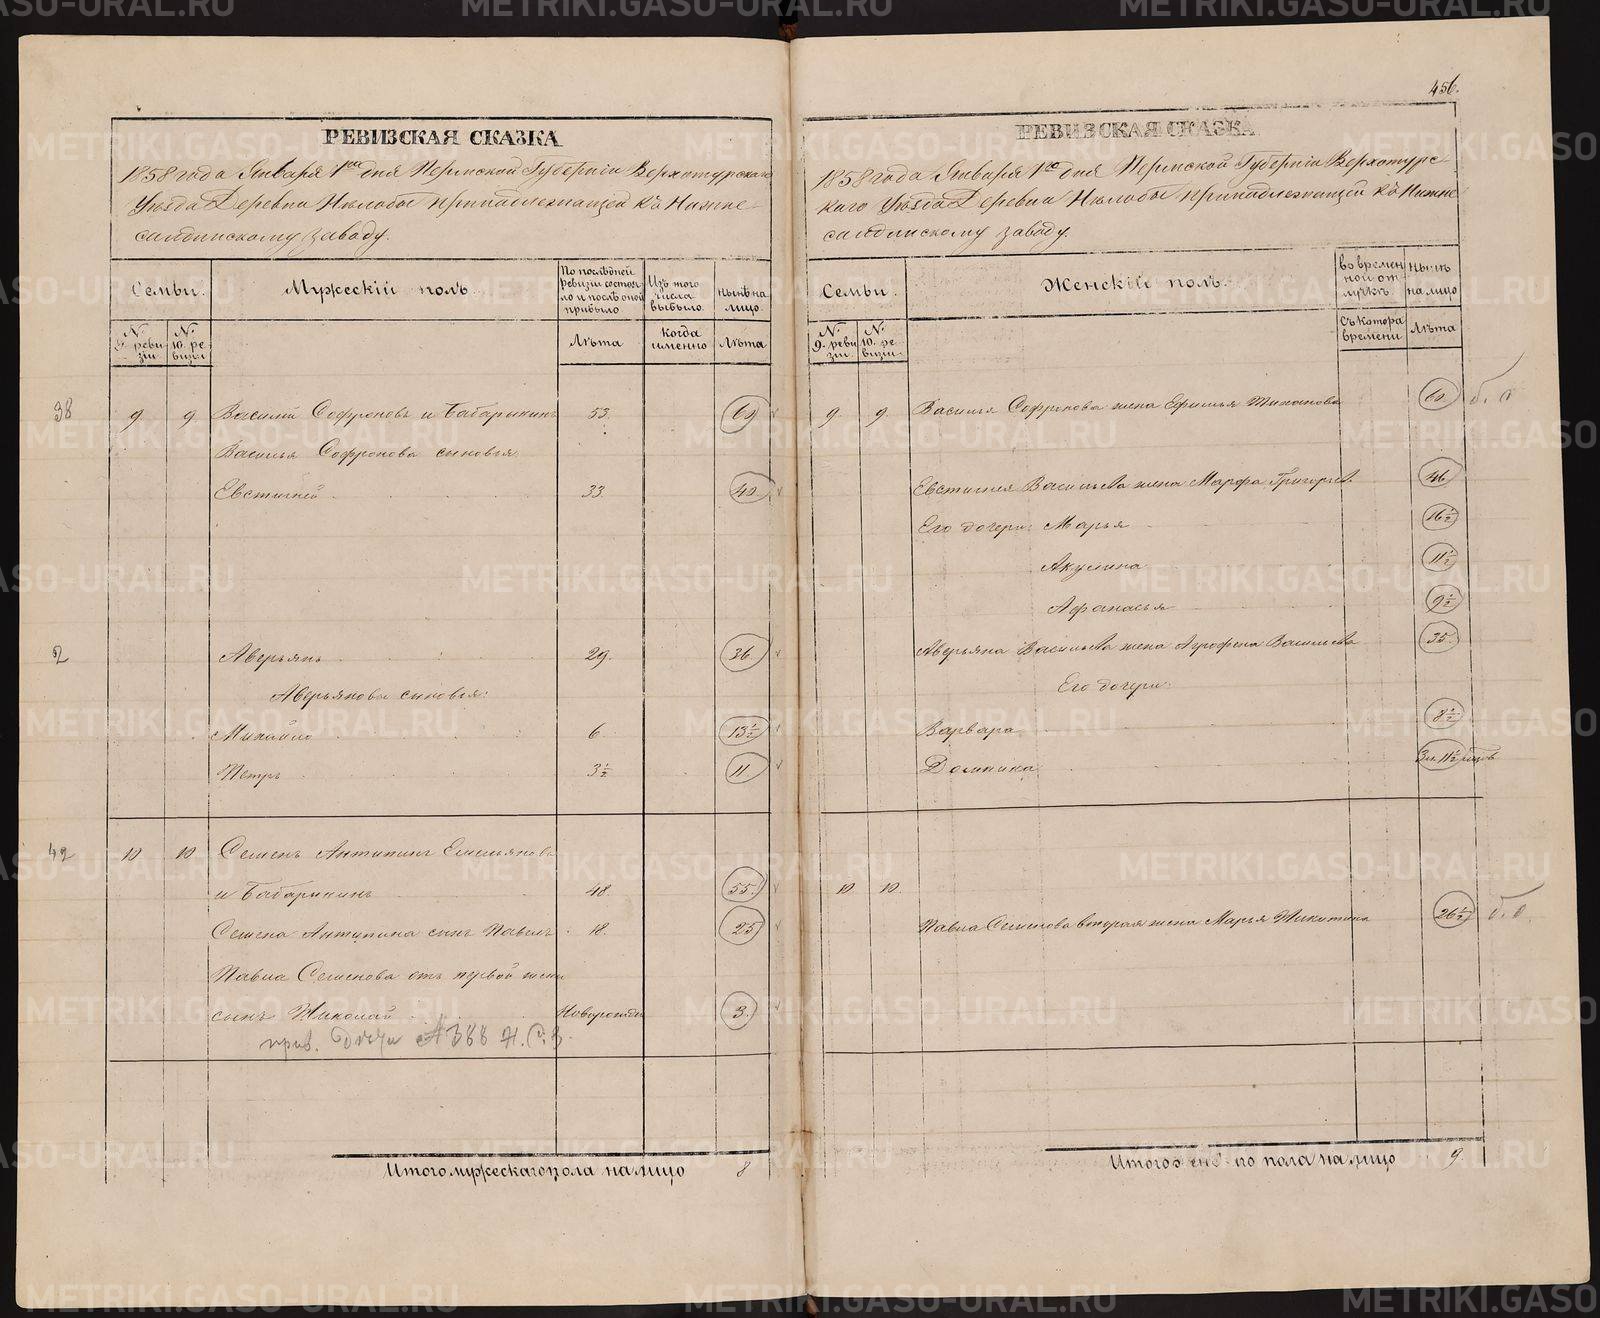 456.
РЕВИЗСКАЯ СКАЗКА
1858 года Января 1го дня Пермской Губерніи Верхотурскаго
Уѣзда Деревни Нѣлобы принадлежащей къ Нижне-
салдинскому заводу.
Семьи.
Мужескій полъ.
По послѣдней ревизіи состояло и послѣ оной прибыло
Изъ того числа выбыло
Нынѣ на лицо
№ 9. ревизіи
№ 10. ревизіи
Лѣта
Когда именно
Лѣта
38 9. 9. Василій Софроновъ и Бабарыкинъ 53. 60
Василья Софронова сыновья
Евстигней 33. 40
2 Аверьянъ 29. 36.
Аверьяновы сыновья:
Михайло 6 13½
Петръ 3½ 11
42 10 10 Семенъ Антипинъ Емельяновъ
и Бабарыкинъ 48. 55.
Семена Антипина сынъ Павелъ 18. 25
Павла Семенова отъ первой жены
сынъ Николай Новорожд. 3.
прив. 388 Н.
Итого мужескаго пола на лицо 8
РЕВИЗСКАЯ СКАЗКА
1858 года Января 1го дня Пермской Губерніи Верхотурс-
каго Уѣзда Деревни Нѣлобы принадлежащей къ Нижне
салдинскому заводу.
Семьи.
Женскій полъ.
во временной отлучкѣ
Нынѣ на лицо
№ 9. ревизіи
№ 10. ревизіи
Съ котора времени
Лѣта
9. 9. Василья Софронова жена Ефимья Тиханова 60.
Евстигнея Васильева жена Марфа Григорьев. 46
Его дочери: Марья 16½
Акулина 11½
Афанасья 9½
Аверьяна Васильева жена Аграфена Васильева 35.
Его дочери:
Варвара 8½
Домнина
10 10.
Павла Семенова вторая жена Марья Никитина 26½
Итого женскаго пола на лицо 9
METRIKI.GASO-URAL.RU